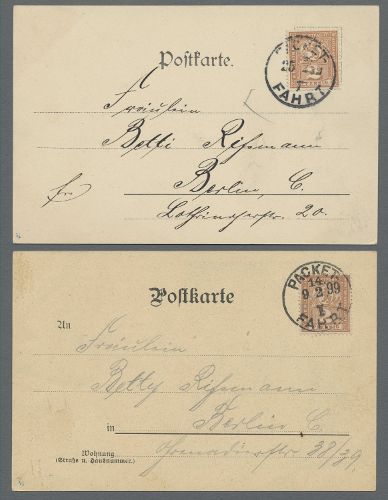 Postkarte.
PACKET
FAHRT
Fräulein
Betti Rissmann
Berlin, C.
Lothringerstr. 20.
Postkarte
PACKET
14
9 2 99
T
FAHRT
An
Fräulein
Betty Rissmann
in Berlin C.
Grenadierstr. 38/39.
Wohnung
(Straße u. Hausnummer.)